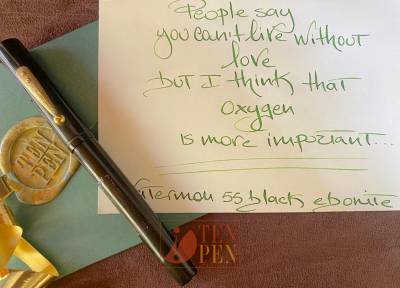 People say
you can't live without
love
but I think that
oxygen
is more important...
55 black ebonite
TEN
PEN
TEN
PEN